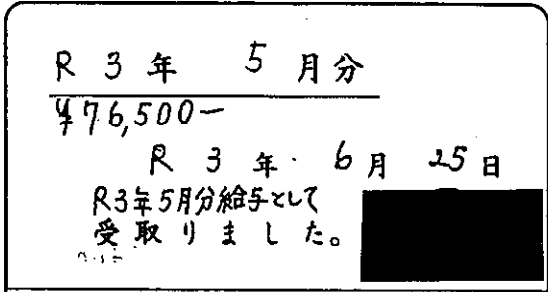 R 3 年 5 月分
¥76,500−
R 3 年 6月 25日
R3年5月分給与として
受取りました。